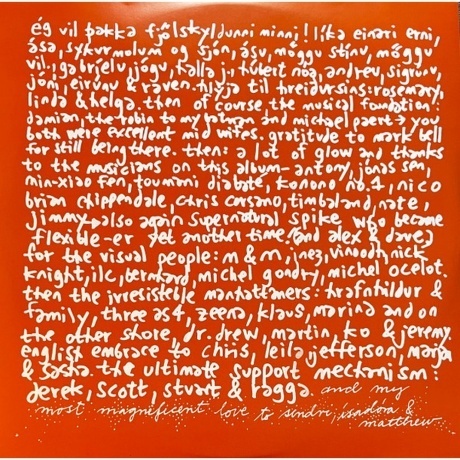 ég vil þakka fjölskyldunni minni! líka einari erni,
ása, sykurmolum og sjón, ásu, móggu stínu, móggu
vil, gabríelu, jógu, halla j, húbert nóa, andrew, sigrúnu,
jóni, eirúnu & raven. hlýja til hreidursins: rosemary,
linda & helga. then of course, the musical foundation:
damian, the robin to my batman and michael paert → you
both were excellent mid wifes. gratitude to mark bell
for still being there. then: a lot of glow and thanks
to the musicians on this album - antony, jónas sen,
min-xiao fen, toumani diabate, konono no.1, nico
brian chippendale, chris corsano, timbaland, nate,
jimmy → also again supernatural spike who became
flexible-er yet another time and alex & dave
for the visual people: m & m, inez, vinoodh, nick
knight, ilc, bernhard, michel gondry, michel ocelot.
then the irresisteble manhattaners: hrafnhildur &
family, three as4, zeena, klaus, marina and on
the other shore, dr. drew, martin, ko & jeremy
english embrace to chris, leila, jefferson, marja
& sasha. the ultimate support mechanism:
derek, scott, stuart & ragga. and my
most magnificent love to sindri, ísadóra &
matthew